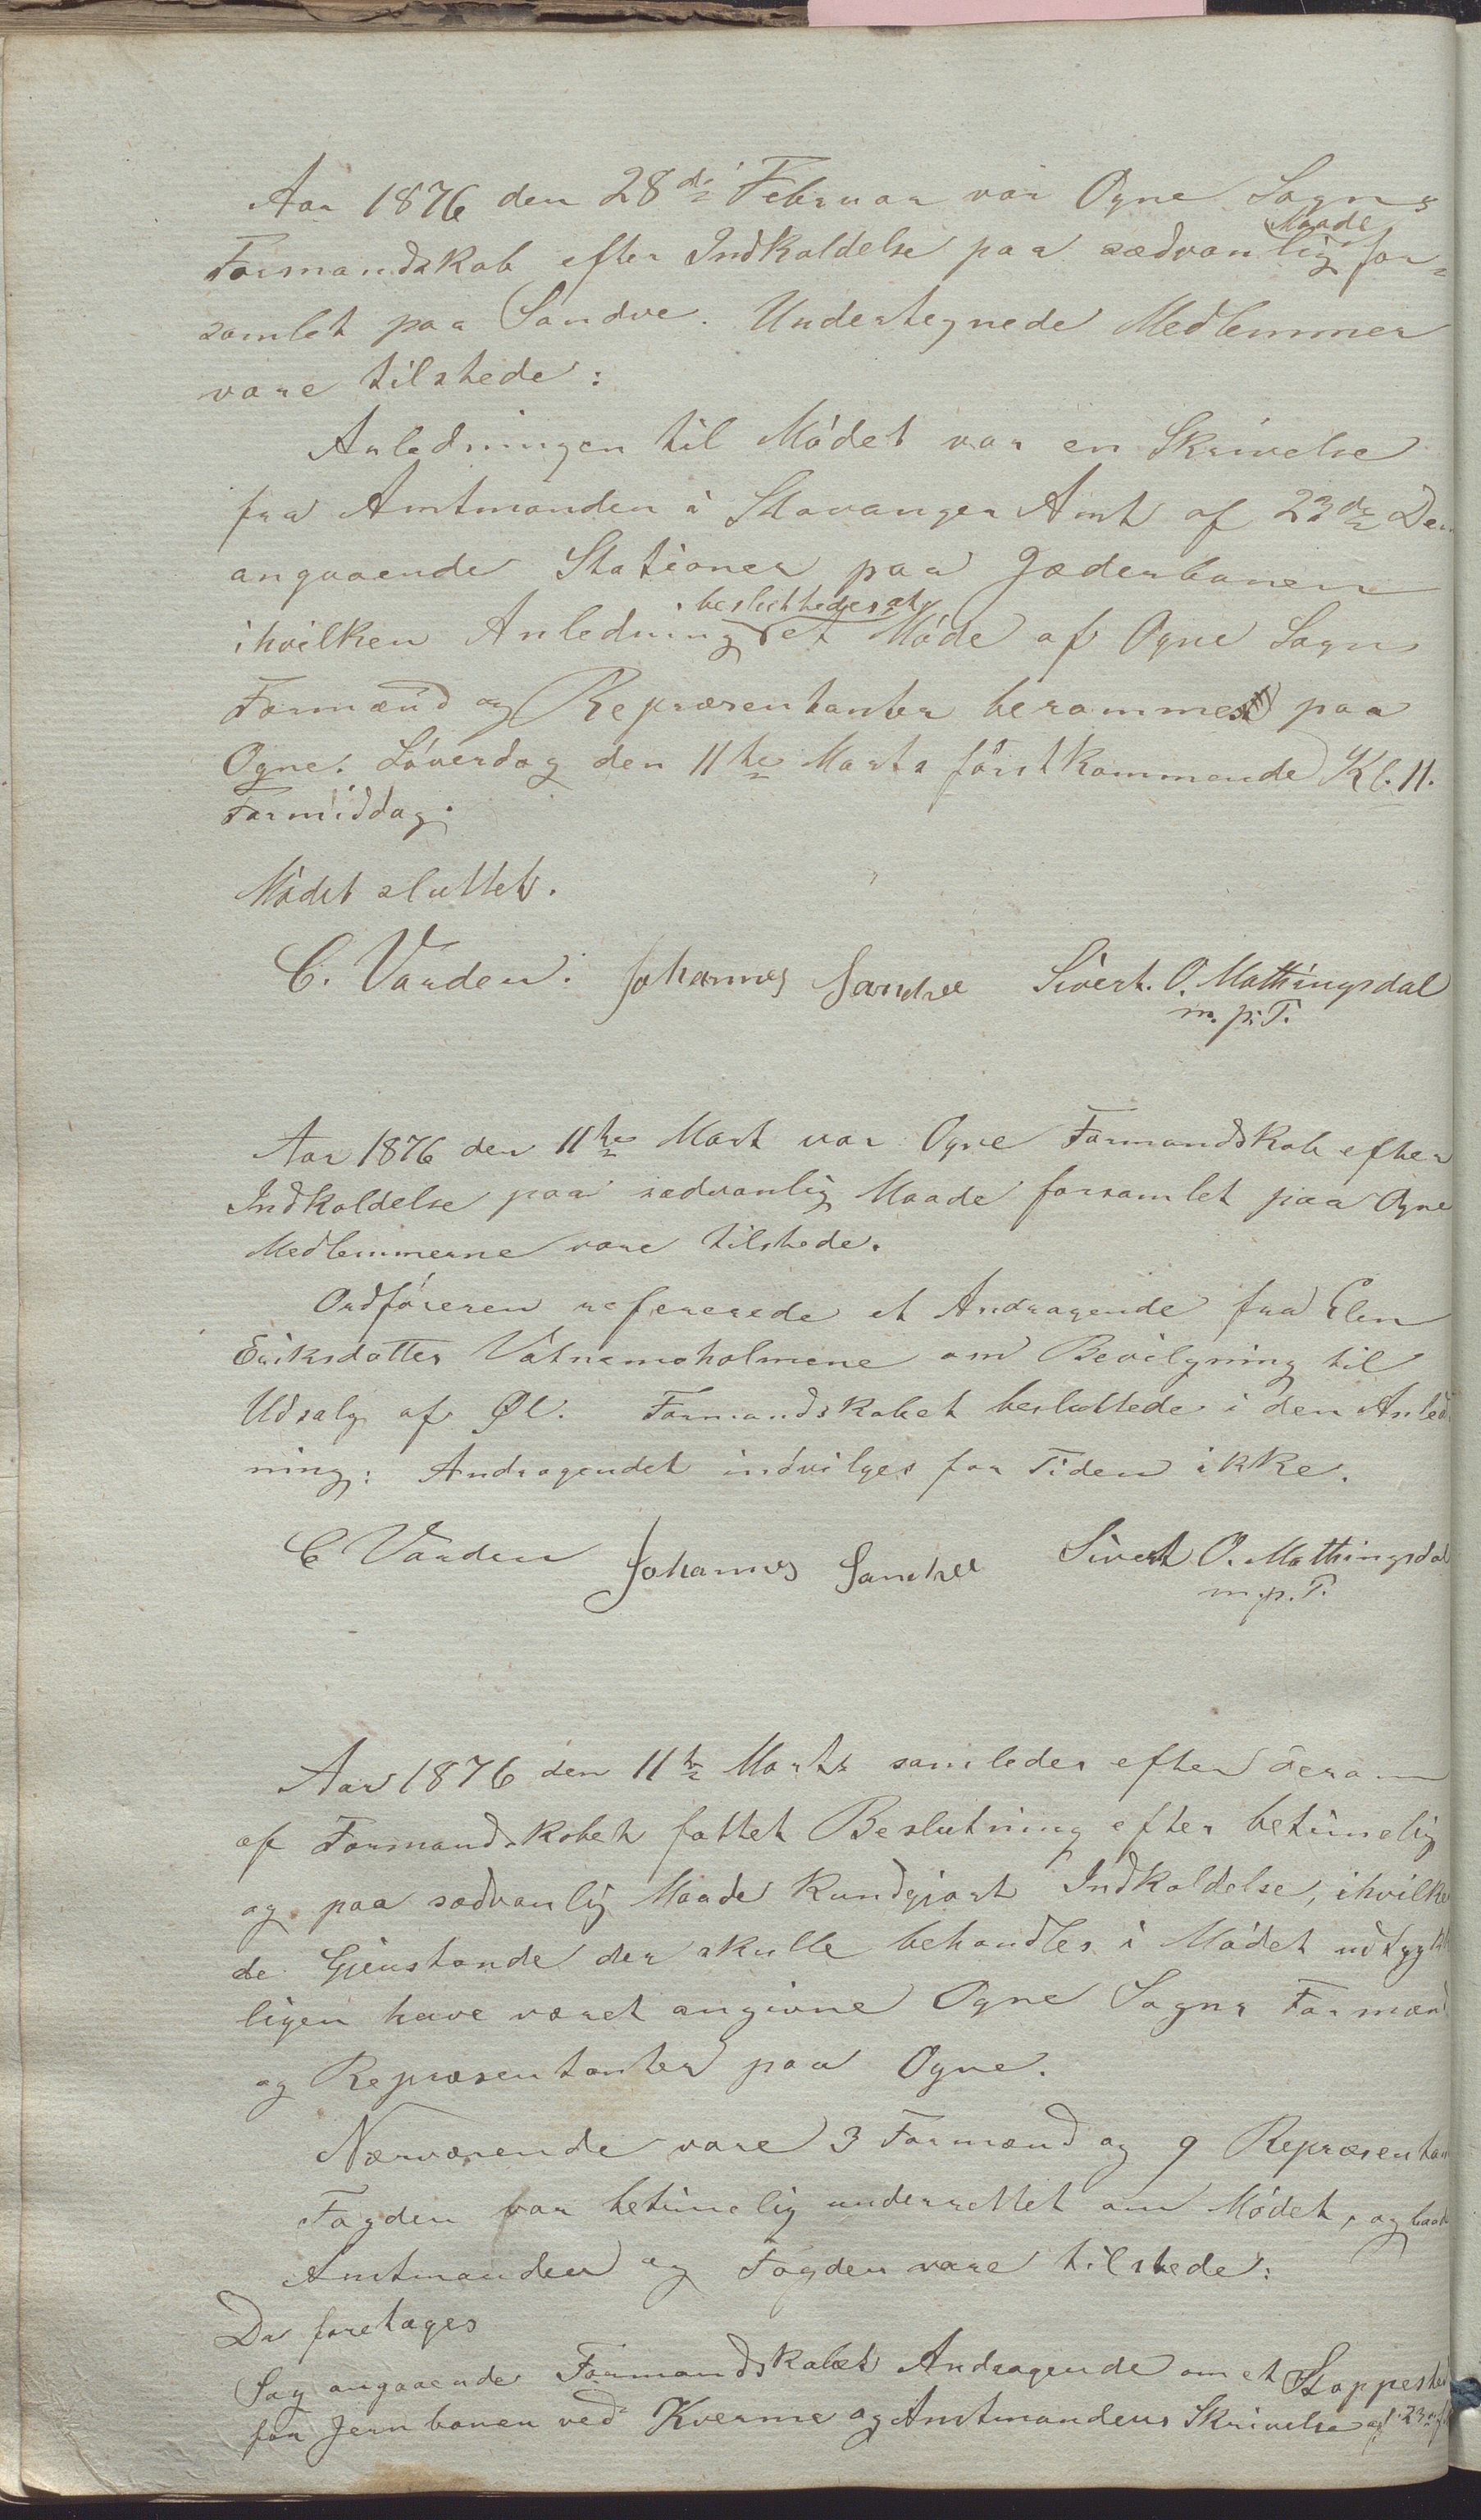 Aar 1876 den 28de Februar var Ogne Sogns
Formandskab efter Indkaldelse paa sædvanlig Maade for-
samlet paa Sandve. Undertegnede Medlemmer
vare tilstede:
Anledningen til Mødet var en Skrivelse
fra Amtmanden i Stavanger Amt af 23de Ds.
angaaende Stationer paa Jæderbanen
ihvilken Anledning besluttedes at et Møde af Ogne Sogns
Formænd og Repræsentanter berammes paa
Ogne. Løverdag den 11te Marts førstkommende Kl. 11.
Formiddag.
Mødet sluttet.
C. Varden. Johannes Sandve Sivert. O. Mattingsdal
m. p. P.
Aar 1876 den 11te Mart var Ogne Formandskab efter
Indkaldelse paa sædvanlig Maade forsamlet paa Ogne
Medlemmerne vare tilstede.
Ordføreren refererede et Andragende fra Elen
Eriksdatter Vatnamoholmene om Bevilgning til
Udsalg af Øl. Formandskabet besluttede i den Anled
ning: Andragendet indvilges for Tiden ikke.
C Varden Johannes Sandve Sivert O. Mathingsdal
m. p. P.
Aar 1876 den 11te Marts samledes efter derom
af Formandskabet fattet Beslutning efter betimelig
og paa sædvanlig Maade kundgjort Indkaldelse, ihvilke
de Gjenstande der skulle behandles i Mødet udtrykke
ligen have været angivne Ogne Sogns Formænd
og Repræsentanter paa Ogne.
Nærværende vare 3 Formænd og 9 Repræsentan
Fogden var betimelig underrettet om Mødet, og baade
Amtmanden og Fogden vare tilstede:
Da foretages
Sag angaaende Formandskabets Andragende om et Stoppested
for Jernbanen ved Kverme og Amtmandens Skrivelse af 23de